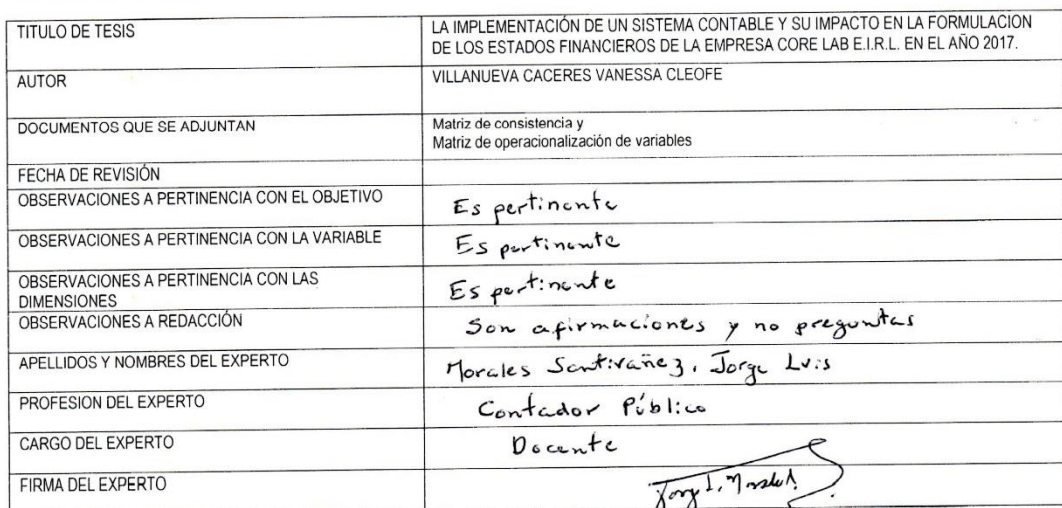 TITULO DE TESIS
LA IMPLEMENTACIÓN DE UN SISTEMA CONTABLE Y SU IMPACTO EN LA FORMULACION
DE LOS ESTADOS FINANCIEROS DE LA EMPRESA CORE LAB E.I.R.L. EN EL AÑO 2017.
AUTOR
VILLANUEVA CACERES VANESSA CLEOFE
DOCUMENTOS QUE SE ADJUNTAN
Matriz de consistencia y
Matriz de operacionalización de variables
FECHA DE REVISIÓN
OBSERVACIONES A PERTINENCIA CON EL OBJETIVO
Es pertinente
OBSERVACIONES A PERTINENCIA CON LA VARIABLE
Es pertinente
OBSERVACIONES A PERTINENCIA CON LAS
DIMENSIONES
Es pertinente
OBSERVACIONES A REDACCIÓN
Son afirmaciones y no preguntas
APELLIDOS Y NOMBRES DEL EXPERTO
Morales Santivañez, Jorge Luis
PROFESION DEL EXPERTO
Contador Público
CARGO DEL EXPERTO
Docente
FIRMA DEL EXPERTO